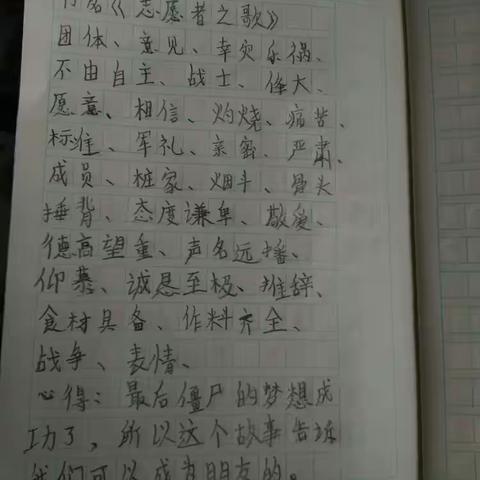 书名《志愿者之歌》
团体、意见、幸灾乐祸、
不由自主、战士、伟大、
愿意、相信、灼烧、痛苦、
标准、军礼、亲密、严肃、
成员、桩家、烟斗、骨头
捶背、态度谦卑、敬爱、
德高望重、声名远播、
仰慕、诚恳至极、推辞、
食材具备、作料齐全、
战争、表情、
心得：最后僵尸的梦想成
功了，所以这个故事告诉
我们可以成为朋友的。